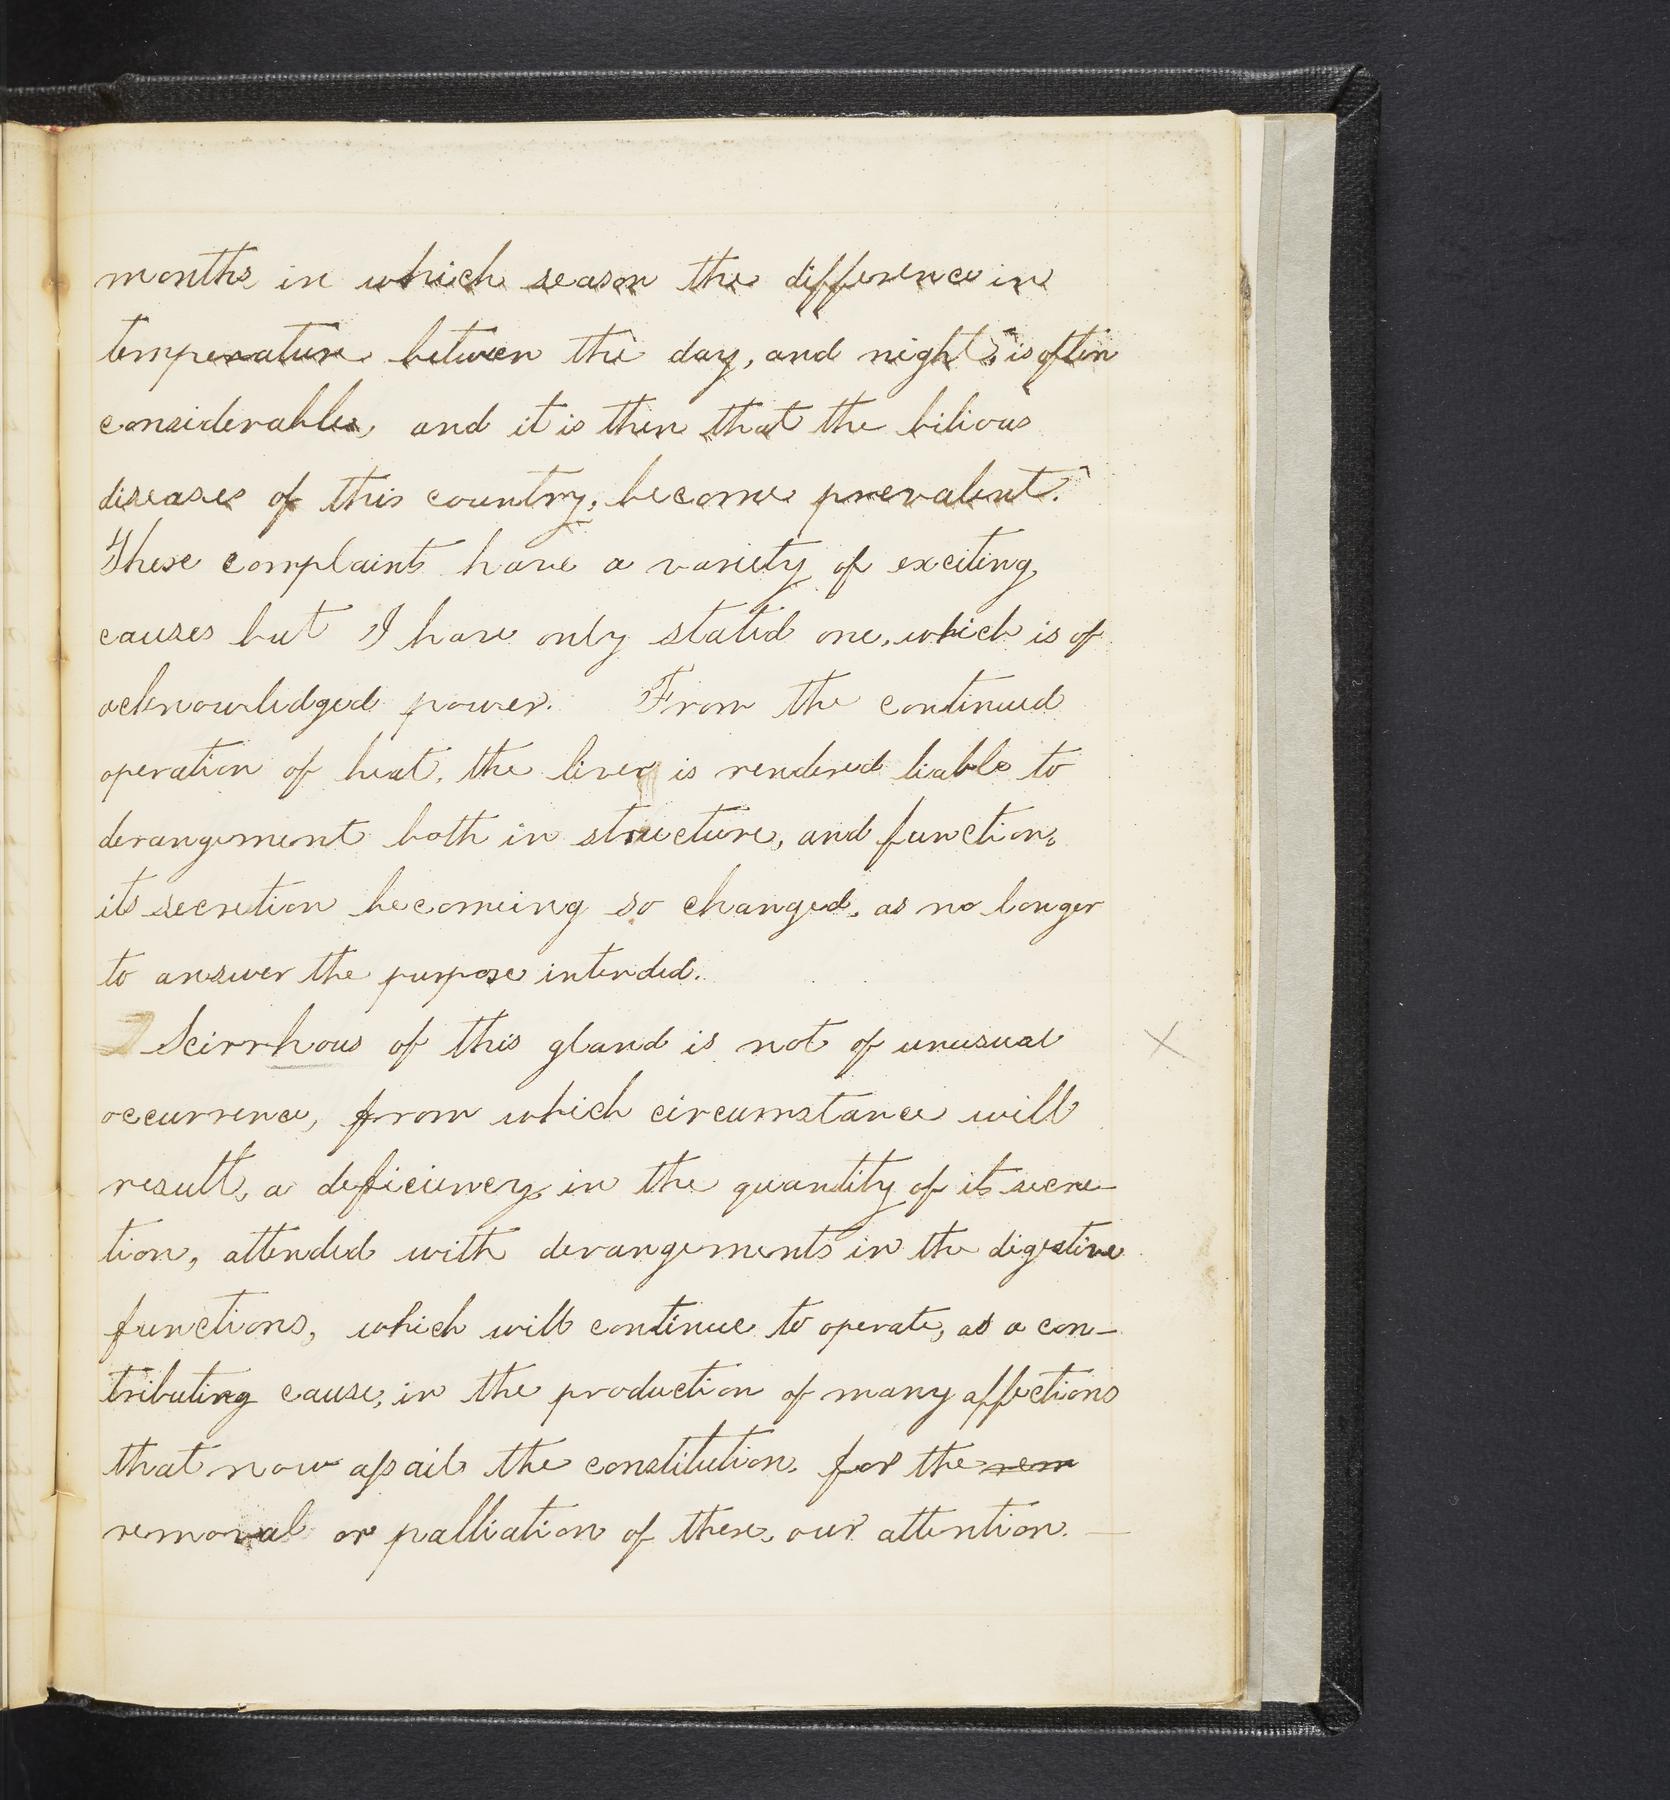 months in which season the difference in
temperature between the day, and night, is often
considerable, and it is then that the bilious
diseases of this country, become prevalent.
These complaints have a variety of exciting
causes but I have only stated one, which is of
acknowledged power. From the continued
operation of heat, the liver is rendered liable to
derangement both in structure, and function,
its secretion becoming so changed, as no longer
to answer the purpose intended.
Scirrhous of this gland is not of unusual
occurrence, from which circumstance will
result, a deficiency in the quantity of its secre-
tion, attended with derangements in the digestive
functions, which will continue to operate, as a con-
tributing cause, in the production of many affections
that now assail the constitution, for the rem
removal or palliation of these, our attention. —